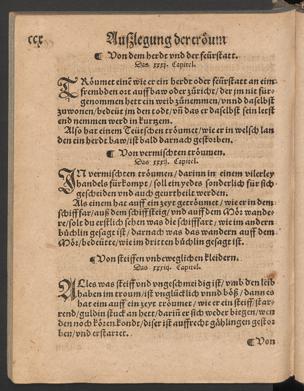 ccx Außlegung der tröum
¶ Von dem herdt vnd der feürstatt.
Das xxxj. Capitel.
TRöumet einē wie er ein herdt oder feürstatt an eim
frembden ort auff baw oder zürich/ der jm nit für
genommen hett ein weib zůnemmen/vnnd daselbst
zuwonen/bedeüt jm den todt/vñ das er daselbst sein letst
end nemmen werd in kurtzem.
Also hat einem Teütschen tröumet/wie er in welsch lan
den ein herdt baw/ist bald darnach gestorben.
¶ Von vermischten tröumen.
Das xxxij. Capitel.
IN vermischten tröumen/ darinn in einem vilerley
handels fürkompt/ soll ein yedts sonderlich für sich
gescheiden vnd auch geurtheilt werden.
Als einem hat auff ein zeyt getröumet/ wie er in dem
schiff far/auß dem schiff steig/vnd auff dem Mör wande-
re/solt du erstlich sehen was die schiffart/ wie im andern
büchlin gesagt ist/ darnach was das wandern auff dem
Mör/bedeütte/wie im dritten büchlin gesagt ist.
¶ Von steiffen vnbeweglichen kleidern.
Das xxxiij. Capitel.
ALles was steiff vnd vngeschmeidig ist/ vmb den leib
haben im troum/ist vnglücklich vnnd böß/ dann es
hat eim auff ein zeyt tröumet/ wie er ein steiff/star-
rend/guldin stuck an hett/darin er sich weder biegen/wen
den noch kören konde/diser ist auffrecht gählingen gestor
ben/vnd erstarret.
¶ Von